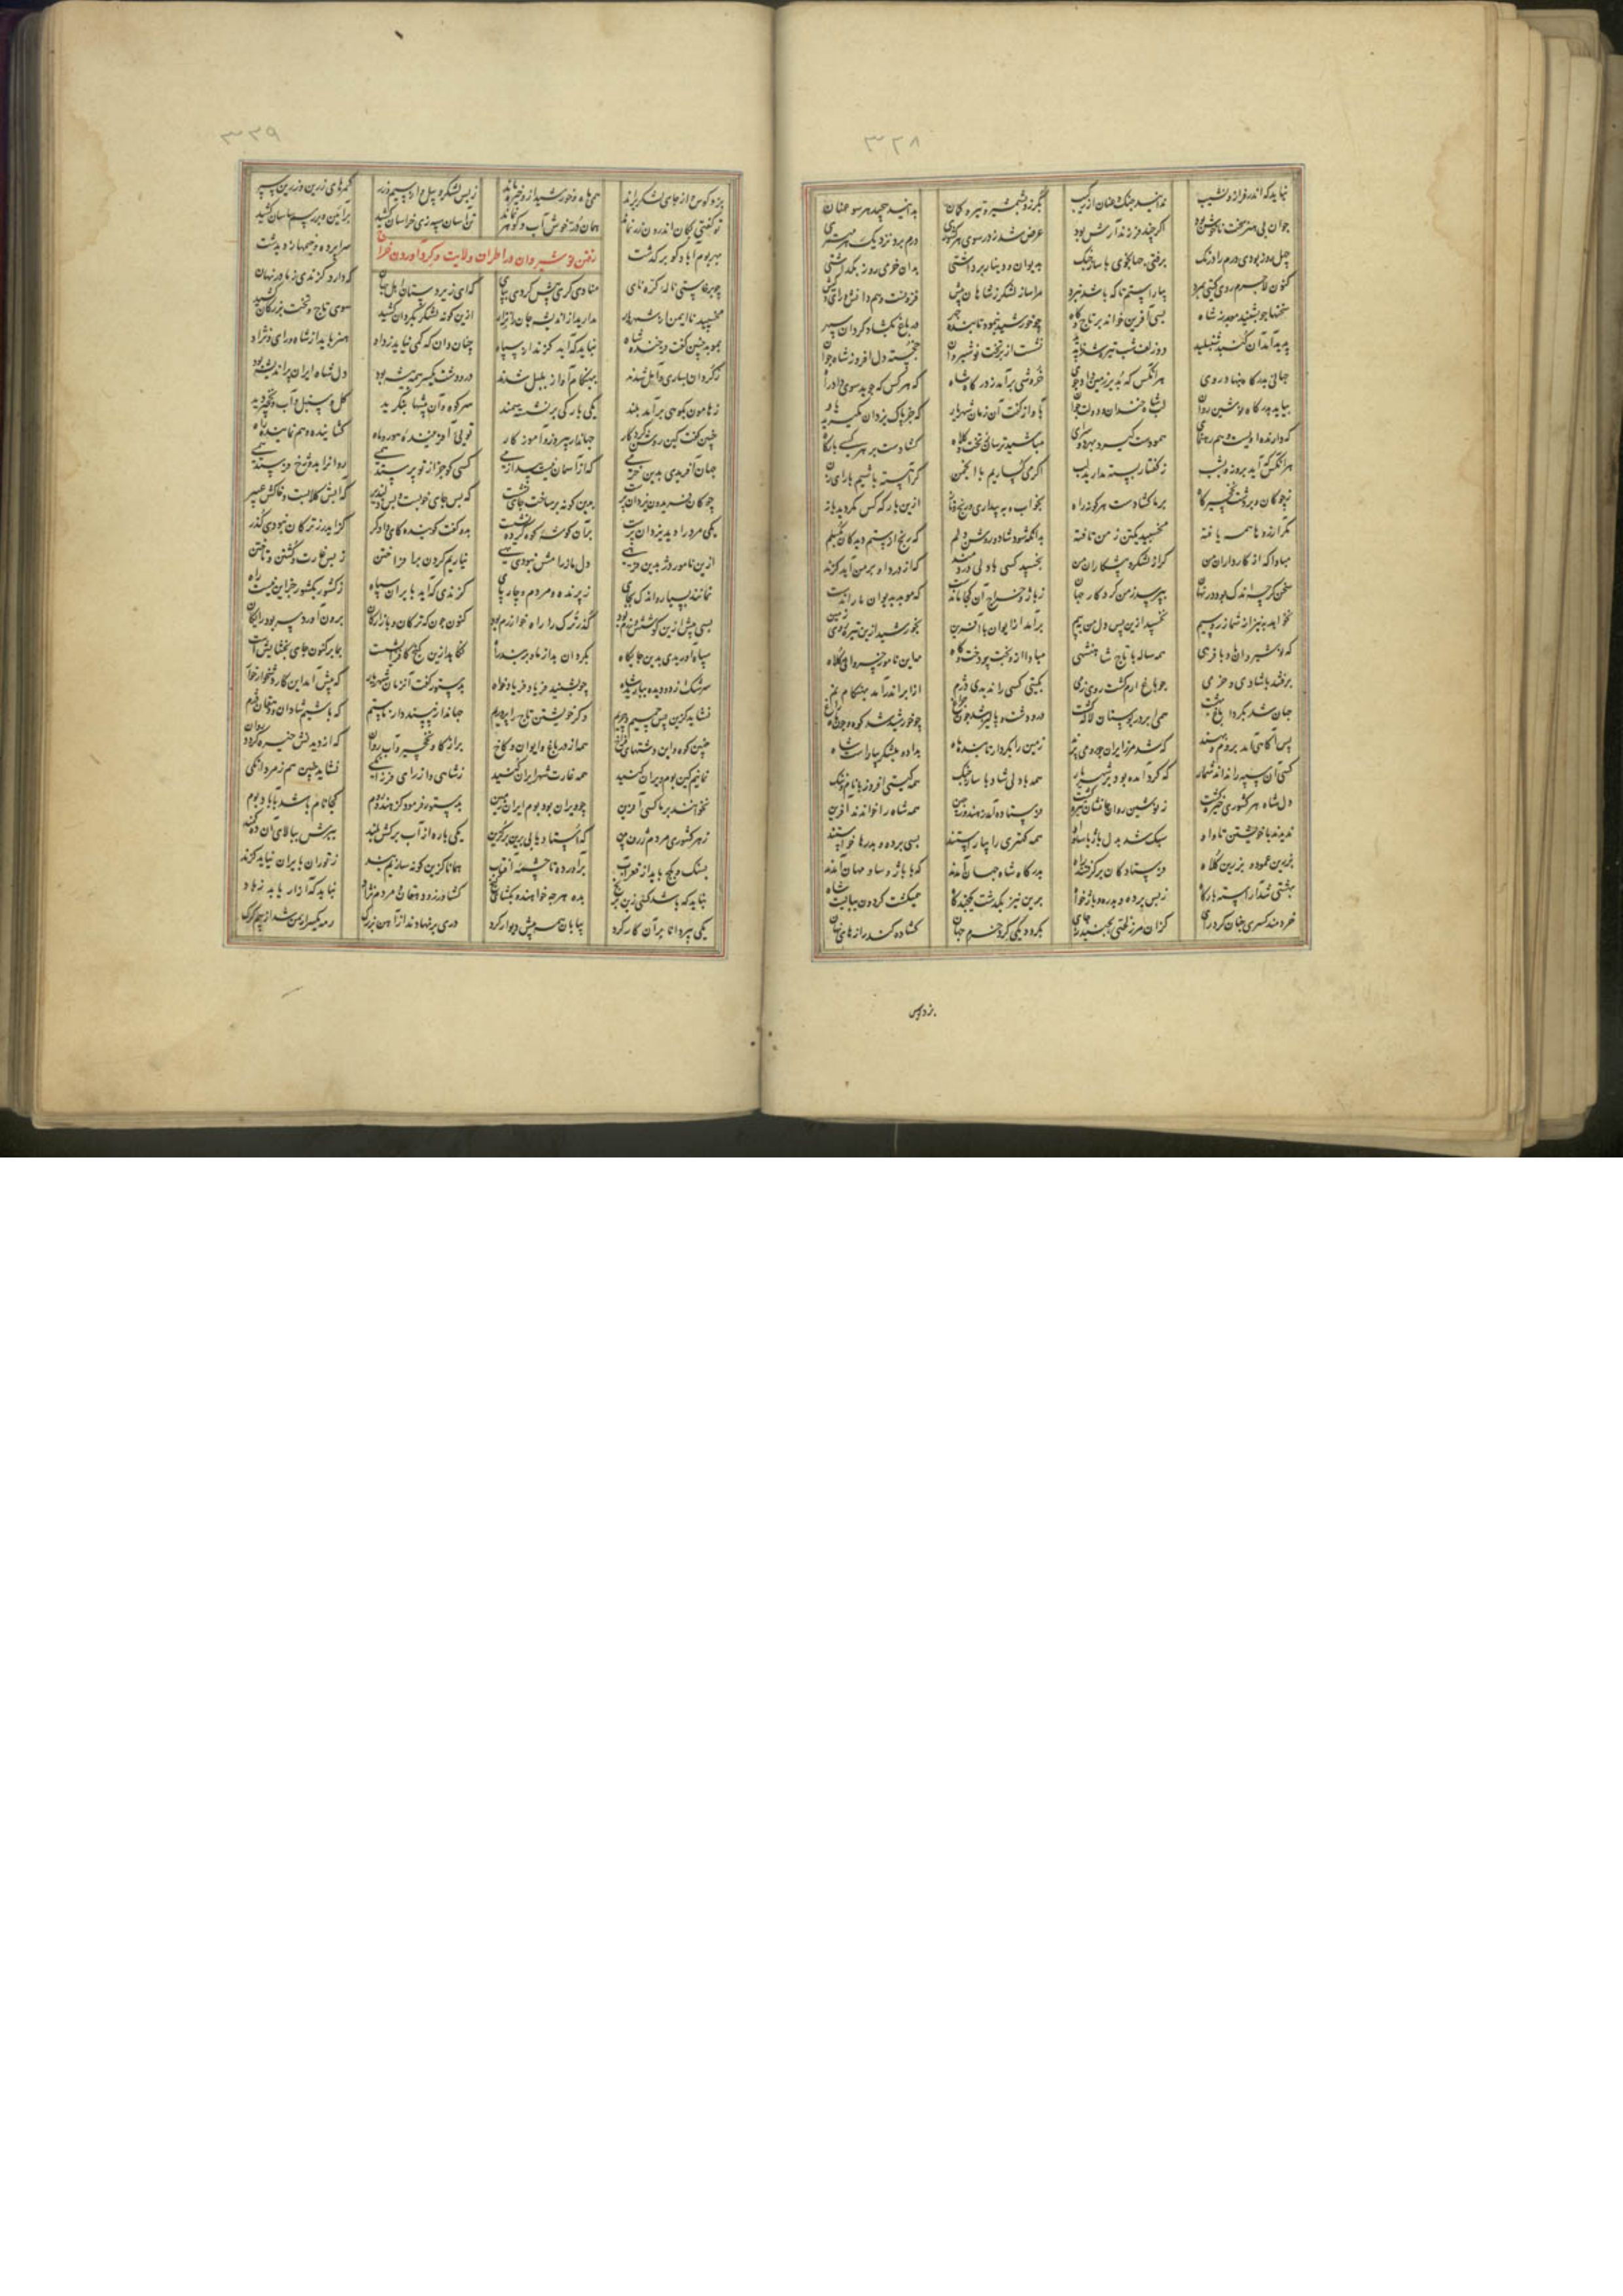 ۳۲۸
نباید که اندر فراز و نشیب ندانید جنگ و عنان از رکیب بگرز و شمشیر و تیر و کمان بدانید پیچید هر سو عنان
جوان بی هنر سخت ناخوش بود اگر چند فرزند آرش بود عرض شد ز در سوی هر کشوری درم برد نزدیک هر مهتری
چهل روز بودی درم را درنگ برفتی جهانجوی با ساز جنگ به دیوان و دینار برداشتی بدان خرمی روز بگذاشتی
کنون لاجرم روی گیتی بمرد بیاراستم تا که باشد نبرد مرا ساز لشکر ز شاهان پیش فزونست و هم دانش و رای و کیش
سخنها چو بشنید موبد ز شاه بسی آفرین خواند بر تاج و گاه چو خورشید بنمود تابنده چهر در باغ بگشاد گردان سپهر
پدید آمد آن گنبد شنبلید دو زلف شب تیره شد ناپدید نشست از بر تخت نوشیروان خجسته دل افروز شاه جوان
جهانی بدرگاه بنهاد روی هر آنکس که بد بر زمین راه جوی خروشی برآمد ز درگاه شاه که هر کس که جوید سوی داد راه
بیاید بدرگاه نوشین روان لب شاه خندان و دولت جوان به آواز گفت آن زمان شهریار که جز پاک یزدان مگیرید یار
که دارنده اویست و هم رهنمای همو دست گیرد بهر دو سرای مباشید ترسان ز تخت و کلاه گشادست بر هر کسی بارگاه
هر آنکس که آید بروز و بشب ز گفتار بسته مدارید لب اگر می گساریم با انجمن گر آهسته باشیم با رای زن
بچوگان و بر دشت نخچیرگاه بر ما گشادست هر گونه راه بخواب و به بیداری و رنج و ناز ازین بارگه کس مگردید باز
مگر آرزوها همه یافته مخسبید یک تن ز من تافته بدانگه شود شاد و روشن دلم که رنج از ستم دیدگان بگسلم
مبادا که از کارداران من گر از لشکر و پیشکاران من بخسبد کسی با دلی دردمند که از درد او بر من آید گزند
سخن گر چه اندک بود در نهان بپرسد ز من کردگار جهان ز باژ و خراج آن کجا مانده است که موبد به دیوان ما رانده است
نخواهد بنیز از شما زر و سیم نخسپید ازین پس دل من ببیم برآمد از ایوان باآفرین بجوشید ازین تیره روی زمین
که نوشیروان باد با فرهی همه ساله با تاج شاهنشهی مباد از تو تخت پردخت و گاه مه این نامور خسروانی کلاه
برفتند با شادی و خرمی چو باغ ارم گشت روی زمی بگیتی کسی را ندیدی دژم از ابر اندر آمد بهنگام نم
جهان شد بکردار باغ بهشت همی ابر در بوستان لاله کشت در و دشت و پالیز شد چون چراغ چو خورشید شد کوه و چون باغ راغ
پس آگاهی آمد بروم و بهند که شد مرز ایران چو رومی پرند زمین را بکردار تابنده ماه بداد و بلشکر بیاراست شاه
کسی آن سپه را نداند شمار که گرد آمده بود بر شهریار همه با دلی شاد و با ساز جنگ همه گیتی افروز با نام و ننگ
دل شاه هر کشوری خیره گشت ز نوشین روان رایشان تیره گشت فرستاده آمد ز هند و ز چین همه شاه را خواندند آفرین
ندیدند با خویشتن تاو او سبک شد بدل باژ با ساو او همه کهتری را بیاراستند بسی برده و بدره ها خواستند
بزرین عمود و بزرین کلاه فرستادگان برگرفتند راه بدرگاه شاه جهان آمدند که با باژ و ساو مهان آمدند
بهشتی شد آراسته بارگاه ز بس برده و بدره و باژخواه برین نیز بگذشت یکچندگاه همی گشت گردون ببالای شاه
خردمند کسری چنان کرد رای کز آن مرز لختی بجنبد ز جای بگردد یکی گرد خرم جهان گشاده کند رازهای نهان
بزد کوس
۳۲۹
بزد کوس و از جای لشکر براند همی ماه و خورشید ازو خیره ماند ز بس لشکر و پیل و از سیم و زر کمرهای زرین و زرین سپر
تو گفتی بکان اندرون زر نماند همان در خوش آب و گوهر نماند تن آسان سپه زی خراسان کشید بر آیین و بر رسم ساسان کشید
بهر بوم آباد کو برگذشت سراپرده و خیمها زد بدشت
رفتن نوشیروان در اطراف ولایت و گرد آوردن خراج
چو برخاستی ناله کره نای منادی گری پیش کردی بپای که ای زیردستان اهل جهان که دارد گزندی ز ما در نهان
مخسپید ناایمن از شهریار مدارید از اندیشه جان نزار ازین گونه لشکر بگردان کشید سوی تاج و تخت بزرگان کشید
بموبد چنین گفت درخنده شاه نباید که آید گزند از سپاه چنان دان که کمی نباید ز داد هنر باید از شاه و رای و نژاد
ز گرگان بساری و آمل شدند بهنگام آواز بلبل شدند در و دشت یکسر همه بیشه بود دل شاه ایران پر اندیشه بود
ز هامون بکوهی برآمد بلند یکی بارگی بر نشسته سمند سر کوه و آن بیشه ها بنگرید گل و سنبل و آب و نخچیر دید
چنین گفت کین روشن کردگار جهاندار پیروز آموزگار تویی آفریننده هور و ماه گشاینده و هم نماینده راه
جهان آفریدی بدین خرمی که از آسمان نیست پیدا زمی کسی کو جز از تو پرستد همی روان را بدوزخ فرستد همی
چو کان فریدون یزدان پرست بدین گونه بر ساخت جای نشست که بس جای خوبست و بس دلپذیر که آبش گلابست و خاکش عبیر
یکی مرد را دید یزدان پرست بران گوشه کوه کرده نشست بدو گفت گوینده کای دادگر گر ایدر ز ترکان نبودی گذر
ازین نامور دژ بدین خرمی دل ما ز رامش نبودی تهی نیاریم گردن برافراختن ز بس غارت و کشتن و تاختن
نماند بسیار و اندک بجای ز پرنده و مردم و چارپای گزندی که آید بایران سپاه ز کشور بکشور جز این نیست راه
بسی پیش ازین کوشش و رزم بود گذر ترک را راه خوارزم بود کنون چون که ترکان و بازارگان برون آورد سر بود رایگان
سپاه آوریدی بدین جایگاه بگردان بد از ما و بنمای راه نکاهد ازین گنج کاندر نشست بما بر کنون جای بخشایش است
سرشک از دو دیده ببارید شاه چو بشنید فریاد و فریادخواه بدستور گفت آن زمان شهریار که پیش آمد این کار دشخوار خوار
نشاید کزین پس چمیم و چریم و گر خویشتن تاج را پروریم جهاندار نپسندد از ما ستم که باشیم شادان و دهقان دژم
چنین کوه و این دشتهای فراخ همه از در باغ و ایوان و کاخ پر از گاو و نخچیر و آب روان که از دیدنش خیره گردد روان
نمانیم کین بوم ویران کنند همه غارت شهر ایران کنند ز شاهی و از رای فرزانگی نشاید چنین هم ز مردانگی
نخوانند بر ما کسی آفرین چو ویران بود بوم ایران زمین بدستور فرمود کز هند و روم کجا نام باشد به آباد بوم
ز هر کشوری مردم ژرف بین که استاد یابی برین برگزین یکی باره از آب برکش بلند ببرش ببالای آن ده کمند
بسنگ و بگچ باید از قعر آب برآورده تا چشمه آفتاب همانا کزین گونه سازیم بند ز توران بایران نیاید گزند
نباید که باشد کسی زین برنج بده هر چه خواهند و بگشای گنج کشاورز و دهقان و مرد نژاد نباید که آزار یابد ز داد
یکی پیر دانا بر آن کار کرد بیابان همه پیش دیوار کرد دری بر نهادند از آهن بزرگ رمه یکسر ایمن شد از بیم گرگ